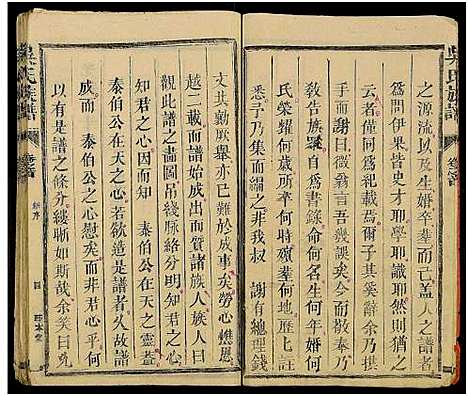 吳氏族譜
卷首
之源流以及生婚卒塟而已蓋人之譜者
為問伊果皆史才耶學耶識耶然猶之
云者何不紀載焉爾于其意余乃拱
手而謝曰微翁言吾幾誤矣今而敢奉乃
敬告族 自為書錄命何名生何年婚何
氏榮耀何時殯塟何地歷七註
悉予乃集而編之非我叔 謝有總理錢
文其勷厥舉亦已難於成事矣勞心憔思
越二載而譜始成出而質諸族人族人曰
觀此譜之晝圖吊綫脉絡分明知君之心
知君之心因而知 泰伯公在天之靈蓋
泰伯公在天之心若欲造諸者久故譜
成而 泰伯公之心慰矣而非君心平何
以有是譜之條分縷晰如斯哉余笑曰兕
吳氏族譜
卷首
新序